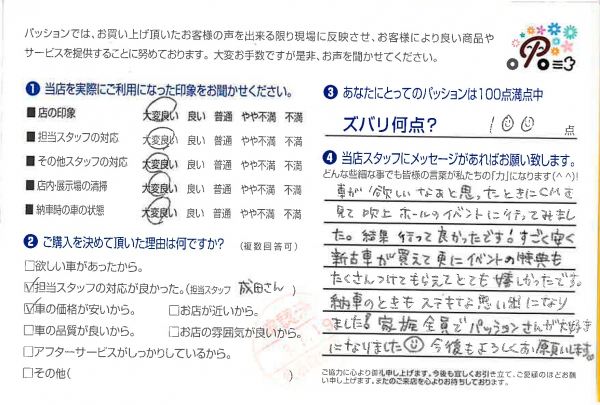 パッションでは、お買い上げ頂いたお客様の声を出来る限り現場に反映させ、お客様により良い商品や
サービスを提供することに努めております。大変お手数ですが是非、お声を聞かせてください。
❶ 当店を実際にご利用になった印象をお聞かせください。
■店の印象 大変良い 良い 普通 やや不満 不満
■担当スタッフの対応 大変良い 良い 普通 やや不満 不満
■その他スタッフの対応 大変良い 良い 普通 やや不満 不満
■店内・展示場の清掃 大変良い 良い 普通 やや不満 不満
■納車時の車の状態 大変良い 良い 普通 やや不満 不満
❷ ご購入を決めて頂いた理由は何ですか? (複数回答可)
□欲しい車があったから。
☑担当スタッフの対応が良かった。(担当スタッフ 成田さん )
☑車の価格が安いから。 □お店が近いから。
□車の品質が良いから。 □お店の雰囲気が良いから。
□アフターサービスがしっかりしているから。
□その他( )
❸ あなたにとってのパッションは100点満点中
ズバリ何点? 100 点
❹ 当店スタッフにメッセージがあればお願い致します。
どんな些細な事でも皆様の言葉が私たちの「力」になります(^^)!
車が欲しいなぁと思ったときにCMを
見て吹上ホールのイベントに行ってみまし
た。結果行って良かったです!すごく安く
新古車が買えて更にイベントの特典も
たくさんつけてもらえてとても嬉しかったです。
納車のときもステキな思い出になり
ました!家族全員でパッションさんが大好き
になりました☺今後もよろしくお願いします。
ご協力に心より御礼申し上げます。今後も宜しくお引き立て、ご愛顧のほどお願
い申し上げます。またのご来店を心よりお待ちしております。